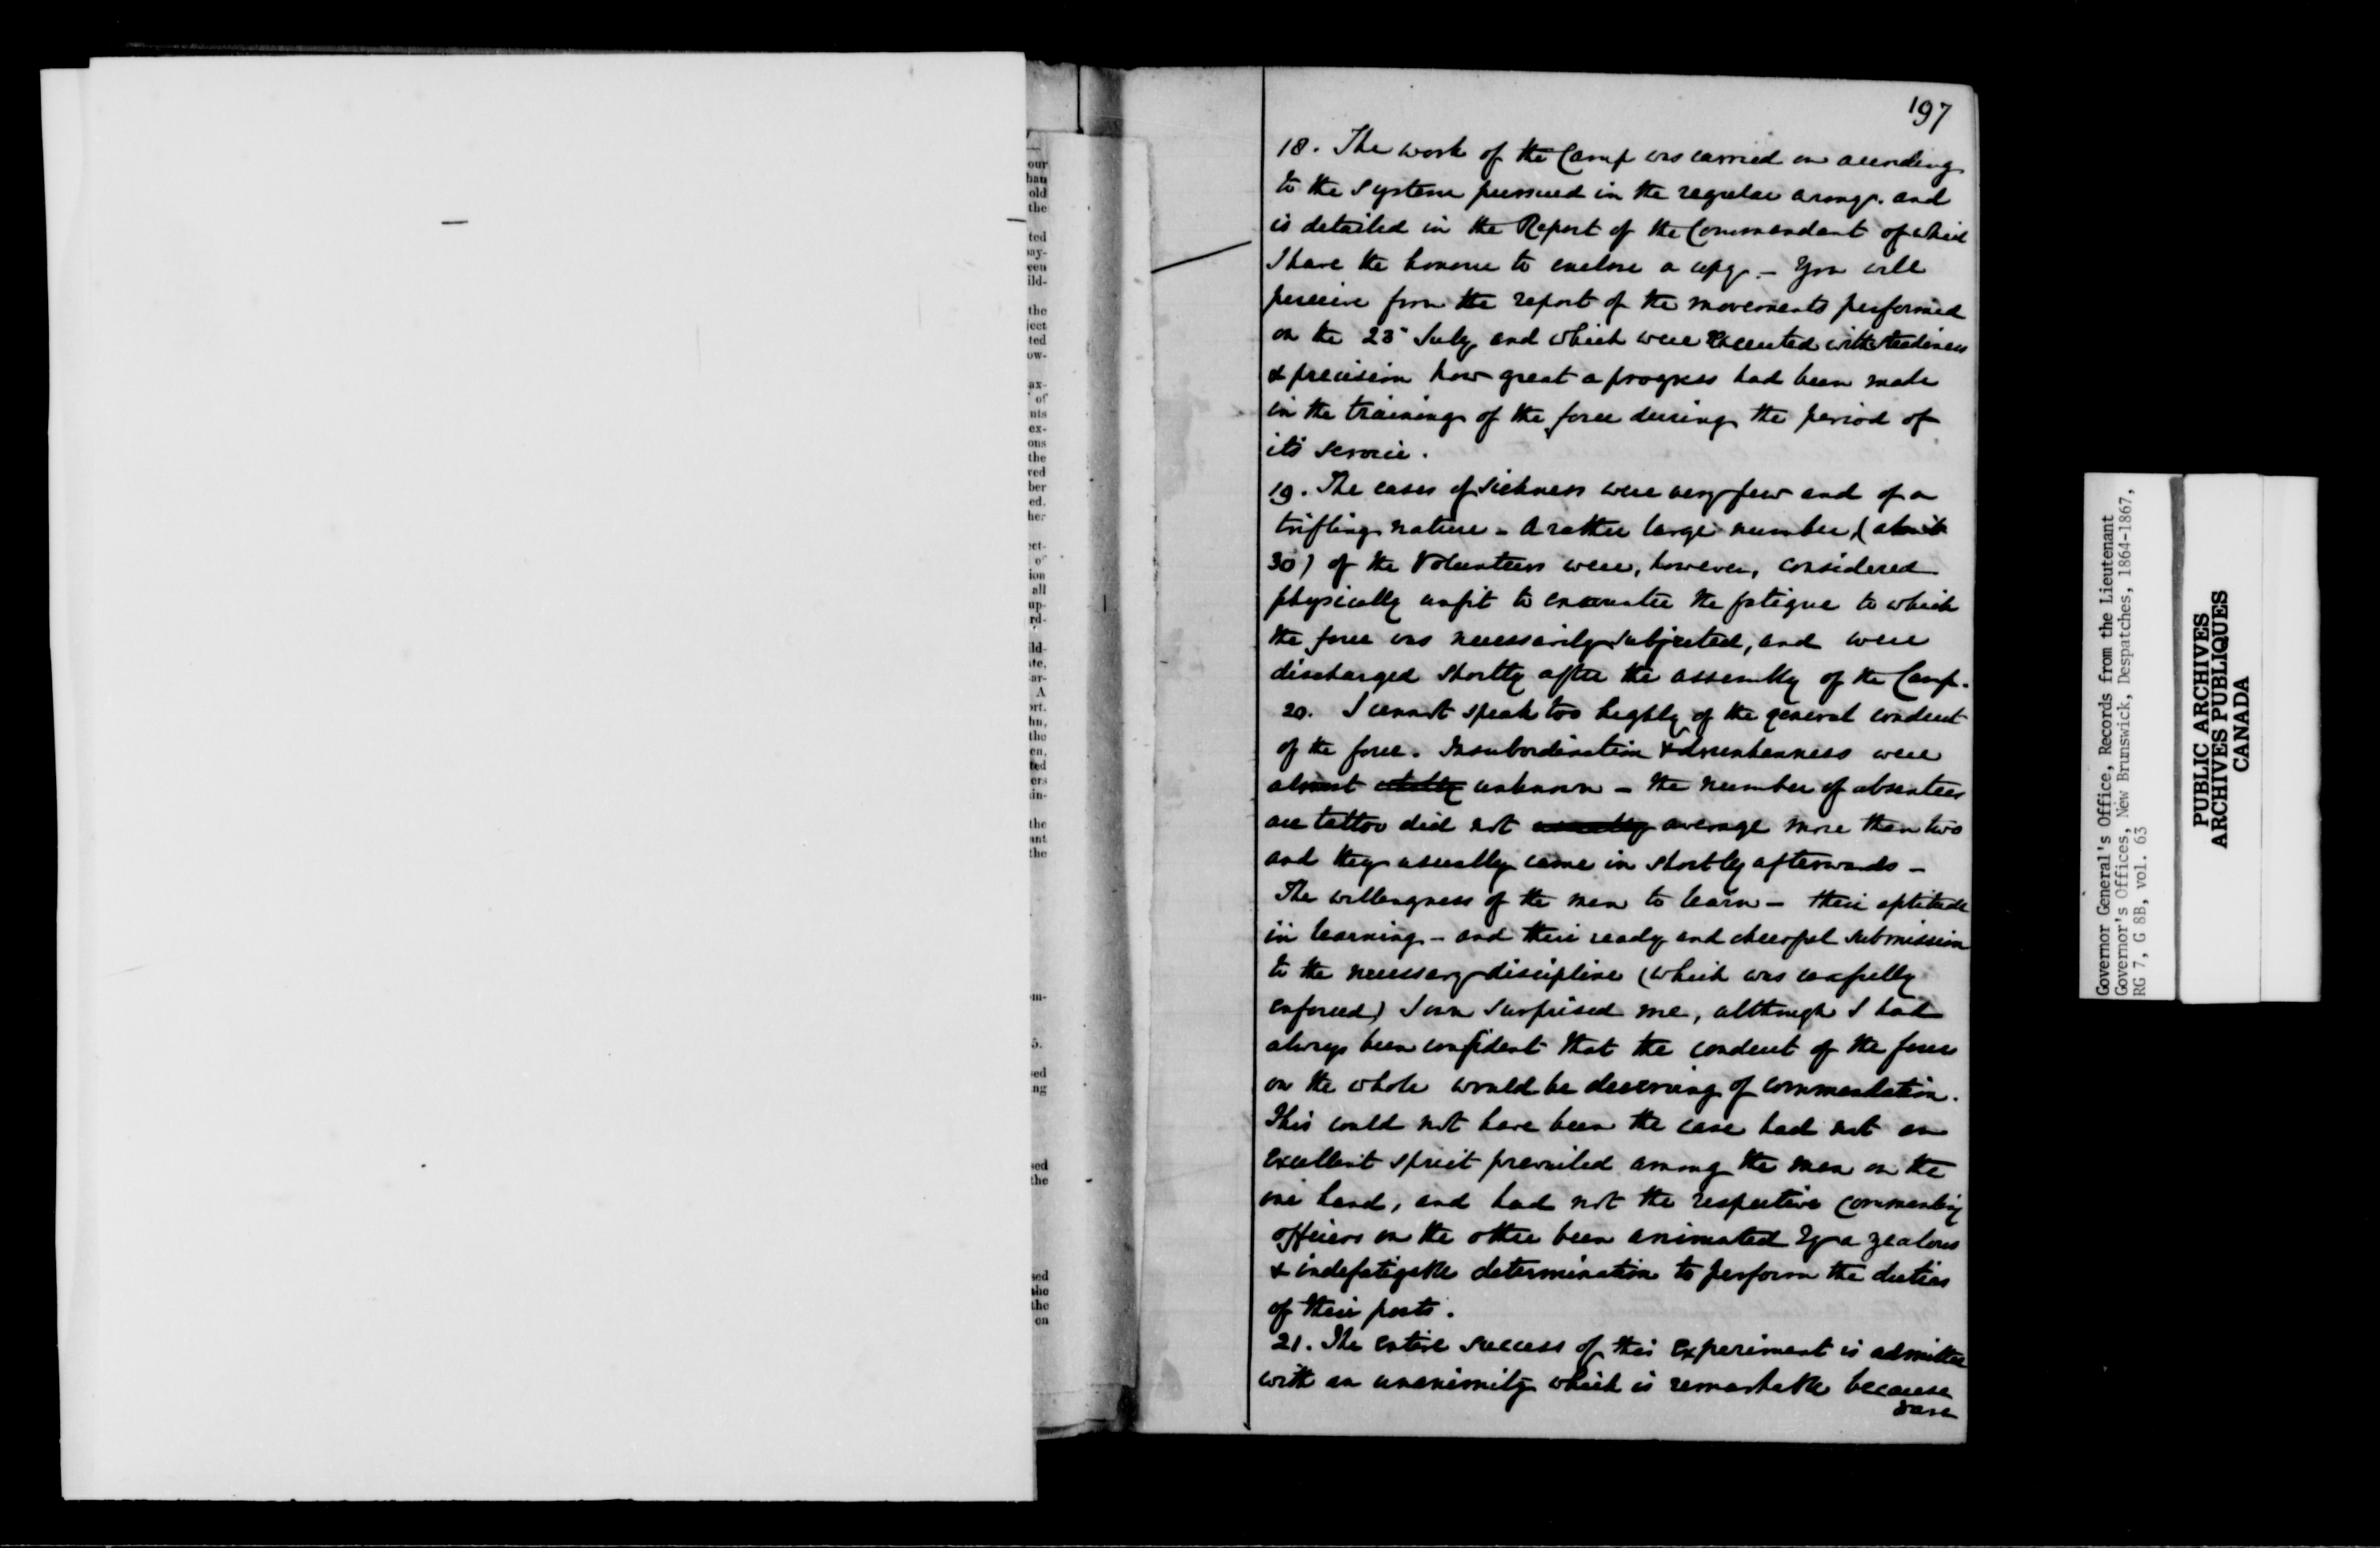 197
18. The work of the Camp was carried on according
to the system pursued in the regular army. and
is detailed in the Report of the Commandant of which
I have the honour to enclose a copy. — You will
perceive from the report of the movements performed
on the 23rd July and which were executed with steadiness
& precision how great a progress had been made
in the training of the force during the period of
its service.
19. The cases of sickness were very few and of a
trifling nature — A rather large number (about
30) of the Volunteers were, however, considered
physically unfit to encounter the fatigue to which
the force was necessarily subjected, and were
discharged shortly after the assembly of the Camp.
20. I cannot speak too highly of the general conduct
of the force. Insubordination & drunkenness were
almost wholly unknown — the number of absentees
at tattoo did not usually average more than two
and they usually came in shortly afterwards —
The willingness of the men to learn — their aptitude
in learning — and their ready and cheerful submission
to the necessary discipline (which was carefully
enforced) I own surprised me, although I had
always been confident that the conduct of the force
on the whole would be deserving of commendation.
This could not have been the case had not an
excellent spirit prevailed among the men on the
one hand, and had not the respective Commanding
officers on the other been animated by a zealous
& indefatigable determination to perform the duties
of their posts.
21. The entire success of this experiment is admitted
with an unanimity which is remarkable because
rare
our
han
old
the
ted
ay-
een
ild-
the
ject
ted
ow-
ax-
of
nts
ex-
ons
the
red
ber
ed.
her
ect-
of
ion
all
up-
rd-
ild-
ate,
ar-
A
ort.
hn,
the
en,
ted
ers
in-
the
ant
the
m-
5.
sed
ng
sed
the
sed
the
the
on
Governor General's Office, Records from the Lieutenant
Governor's Offices, New Brunswick, Despatches, 1864-1867,
RG 7, G 8B, vol. 63
PUBLIC ARCHIVES
ARCHIVES PUBLIQUES
CANADA